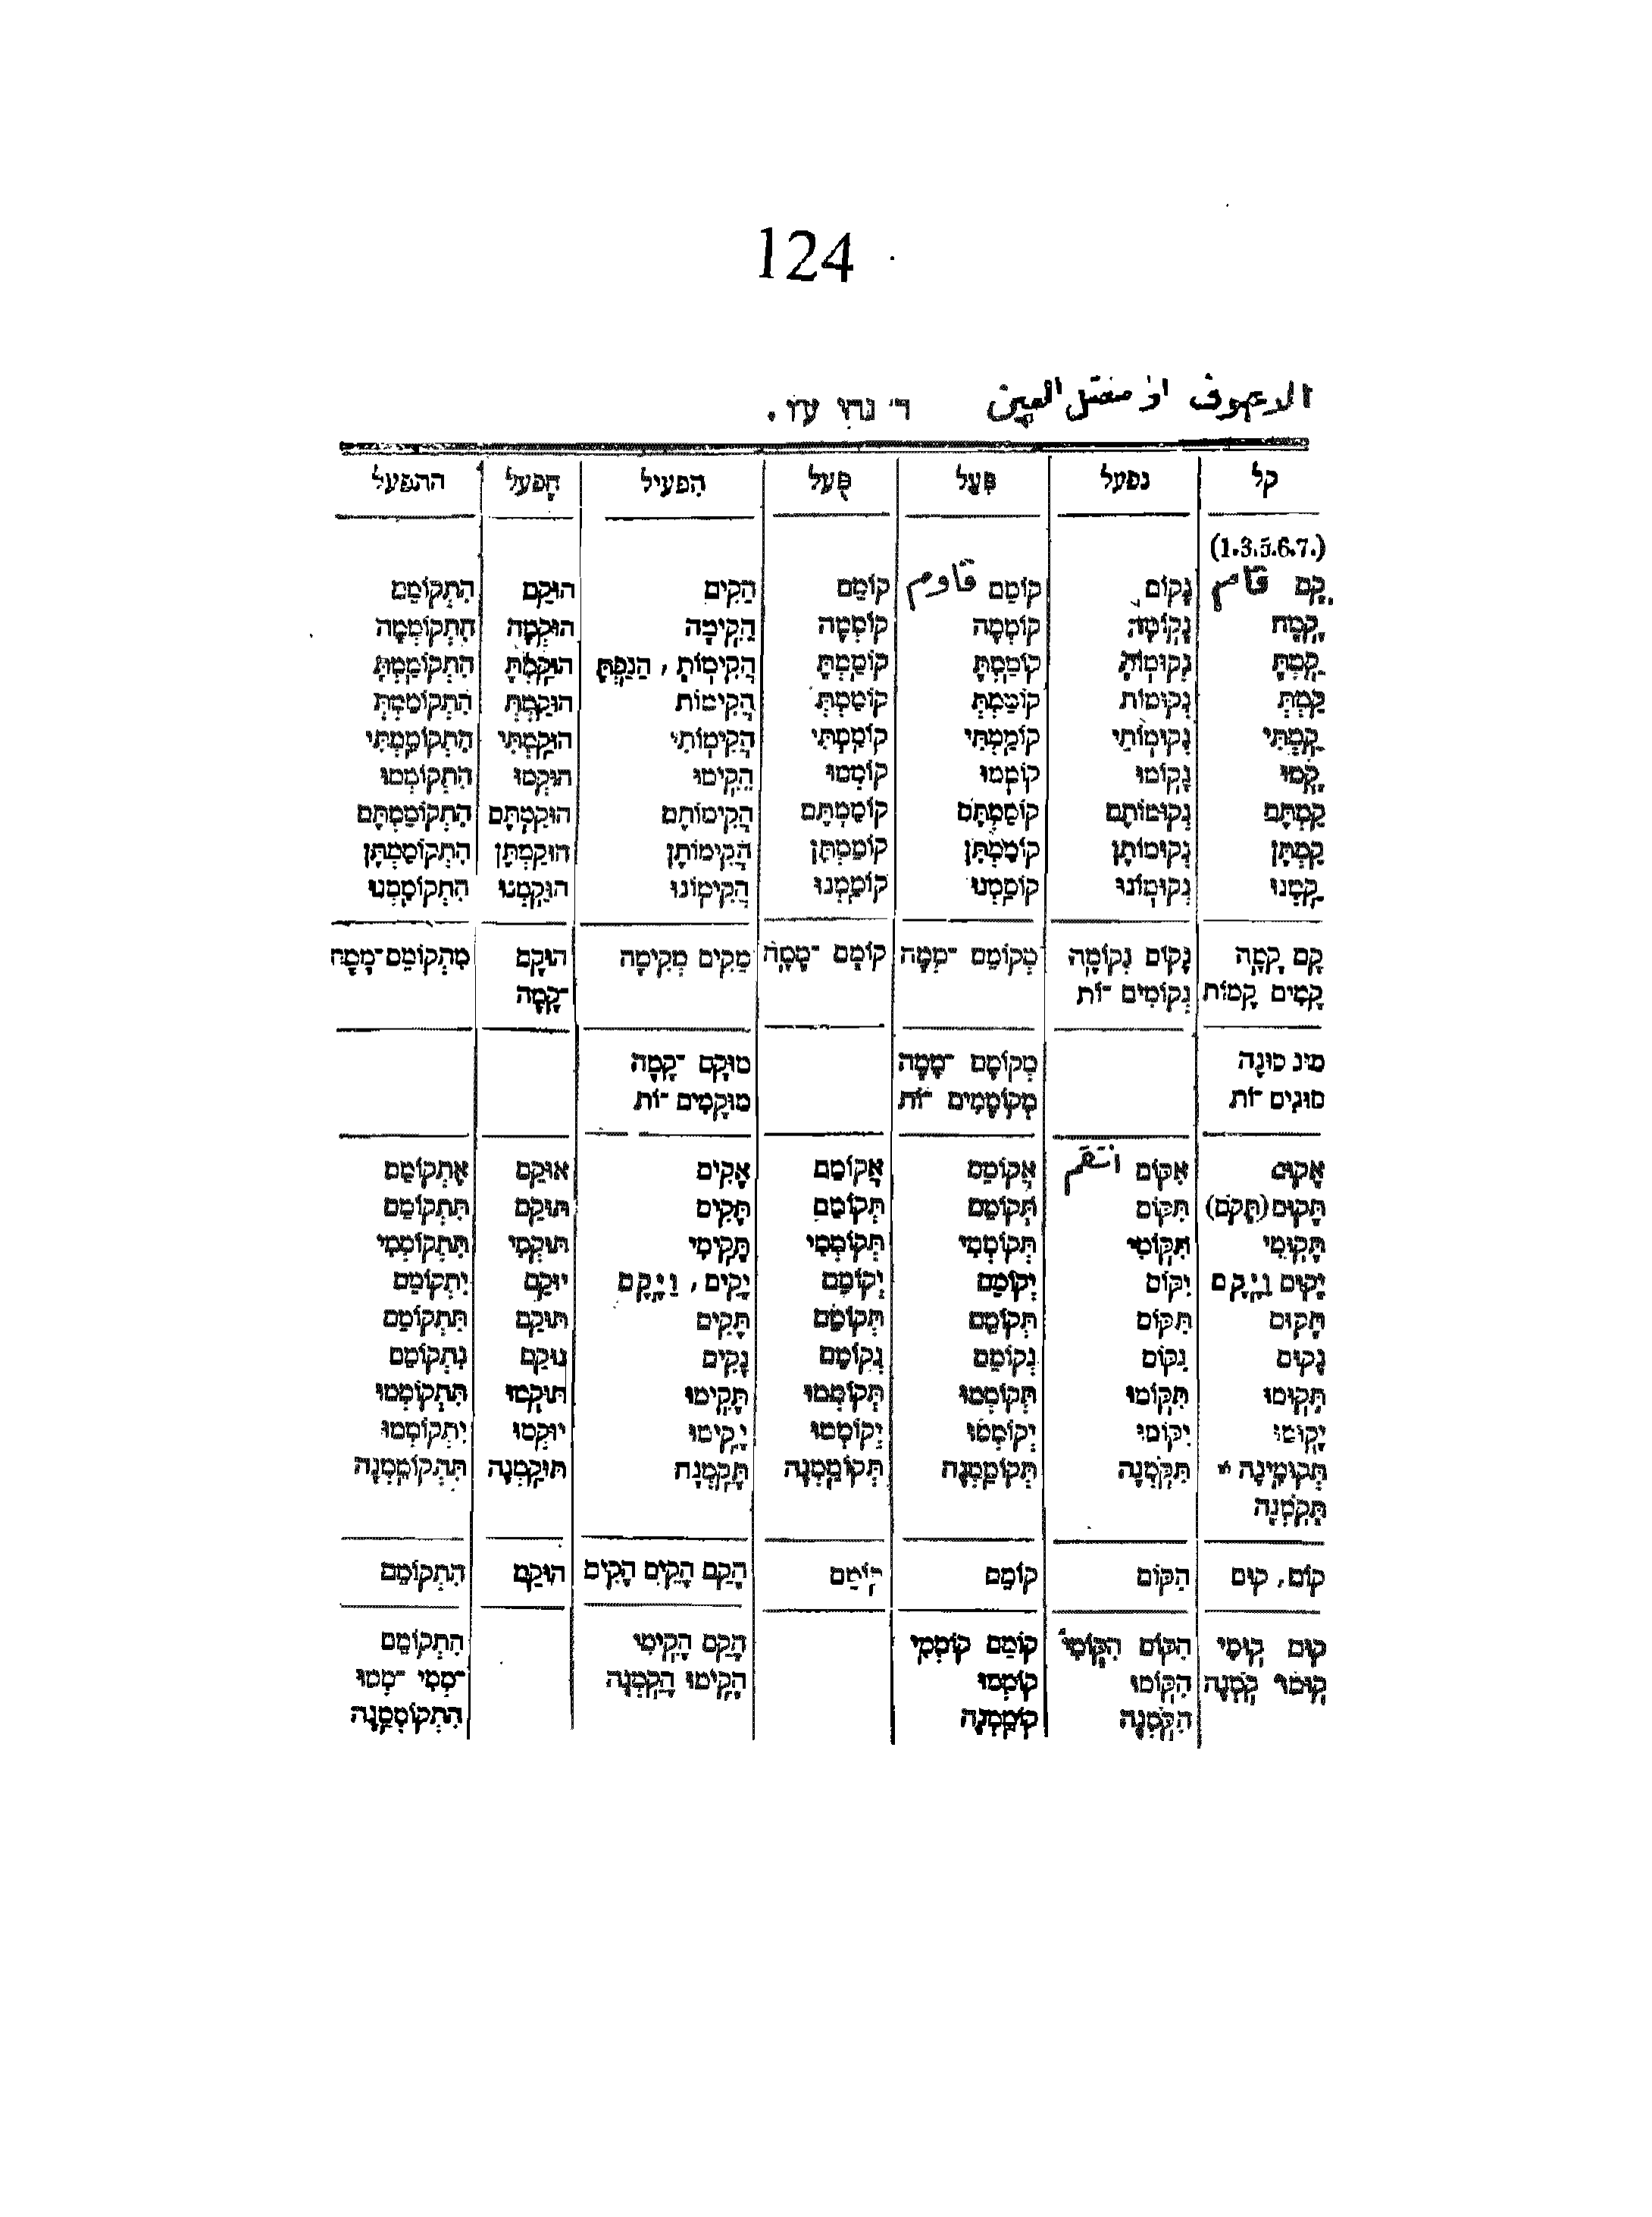 124
الاجوف او معتل العين ר׳ נחי ע״ו.
קל נפעל פִּעֵל פֻּעַל הִפעיל הָפעל התפעל
(1.3.5.6.7.)
קָם قام נָקוֹם קוֹמֵם قاوم קוֹמַם הֵקִים הוּקַם הִתְקוֹמֵם
קָמָה נָקוֹמָה קוֹמְמָה קוֹמְמָה הֵקִימָה הוּקְמָה הִתְקוֹמְמָה
קַמְתָּ נְקוּמוֹתָ קוֹמַמְתָּ קוֹמַמְתָּ הֲקִימוֹתָ, הֵנַפְתָּ הוּקַמְתָּ הִתְקוֹמַמְתָּ
קַמְתְּ נְקוּמוֹת קוֹמַמְתְּ קוֹמַמְתְּ הֲקִימוֹת הוּקַמְתְּ הִתְקוֹמַמְתְּ
קַמְתִּי נְקוּמוֹתִי קוֹמַמְתִּי קוֹמַמְתִּי הֲקִימוֹתִי הוּקַמְתִּי הִתְקוֹמַמְתִּי
קָמוּ נָקוֹמוּ קוֹמְמוּ קוֹמְמוּ הֵקִימוּ הוּקְמוּ הִתְקוֹמְמוּ
קַמְתֶּם נְקוּמוֹתֶם קוֹמַמְתֶּם קוֹמַמְתֶּם הֲקִימוֹתֶם הוּקַמְתֶּם הִתְקוֹמַמְתֶּם
קַמְתֶּן נְקוּמוֹתֶן קוֹמַמְתֶּן קוֹמַמְתֶּן הֲקִימוֹתֶן הוּקַמְתֶּן הִתְקוֹמַמְתֶּן
קַמְנוּ נְקוּמוֹנוּ קוֹמַמְנוּ קוֹמַמְנוּ הֲקִימוֹנוּ הוּקַמְנוּ הִתְקוֹמַמְנוּ
קָם קָמָה נָקוֹם נְקוֹמָה מְקוֹמֵם ־מְמָה קוֹמָם ־מָמָה מֵקִים מְקִימָה הוּקָם מִתְקוֹמֵם־מָמָה
קָמִים קָמוֹת נְקוֹמִים ־וֹת ־קָמָה
סוּג סוּגָה מְקוֹמָם ־מָמָה מוּקָם ־קָמָה
סוּגִים ־וֹת מְקוֹמָמִים ־וֹת מוּקָמִים ־וֹת
אָקוּם אֶקּוֹם انتقم אֲקוֹמֵם אֲקוֹמַם אָקִים אוּקַם אֶתְקוֹמֵם
תָּקוּם (תָּקֹם) תִּקּוֹם תְּקוֹמֵם תְּקוֹמַם תָּקִים תּוּקַם תִּתְקוֹמֵם
תָּקוּמִי תִּקּוֹמִי תְּקוֹמְמִי תְּקוֹמְמִי תָּקִימִי תּוּקְמִי תִּתְקוֹמְמִי
יָקוּם וַיָּקָם יִקּוֹם יְקוֹמֵם יְקוֹמַם יָקִים, וַיָּקֶם יוּקַם יִתְקוֹמֵם
תָּקוּם תִּקּוֹם תְּקוֹמֵם תְּקוֹמַם תָּקִים תּוּקַם תִּתְקוֹמֵם
נָקוּם נִקּוֹם נְקוֹמֵם נְקוֹמַם נָקִים נוּקַם נִתְקוֹמֵם
תָּקוּמוּ תִּקּוֹמוּ תְּקוֹמְמוּ תְּקוֹמְמוּ תָּקִימוּ תּוּקְמוּ תִּתְקוֹמְמוּ
יָקוּמוּ יִקּוֹמוּ יְקוֹמְמוּ יְקוֹמְמוּ יָקִימוּ יוּקְמוּ יִתְקוֹמְמוּ
תְּקוּמֶינָה * תִּקֹּמְנָה תְּקוֹמַמְנָה תְּקוֹמַמְנָה תָּקֵמְנָה תּוּקַמְנָה תִּתְקוֹמַמְנָה
תָּקֹמְנָה
קוֹם, קוּם הִקּוֹם קוֹמֵם קוֹמַם הָקֵם הָקִים הָקִים הוּקַם הִתְקוֹמֵם
קוּם קוּמִי הִקּוֹם הִקּוֹמִי קוֹמֵם קוֹמְמִי הָקֵם הָקִימִי הִתְקוֹמֵם
קוּמוּ קֹמְנָה הִקּוֹמוּ קוֹמְמוּ הָקִימוּ הָקֵמְנָה ־מְמִי ־מְמוּ
הִקֹּמְנָה קוֹמַמְנָה הִתְקוֹמַמְנָה